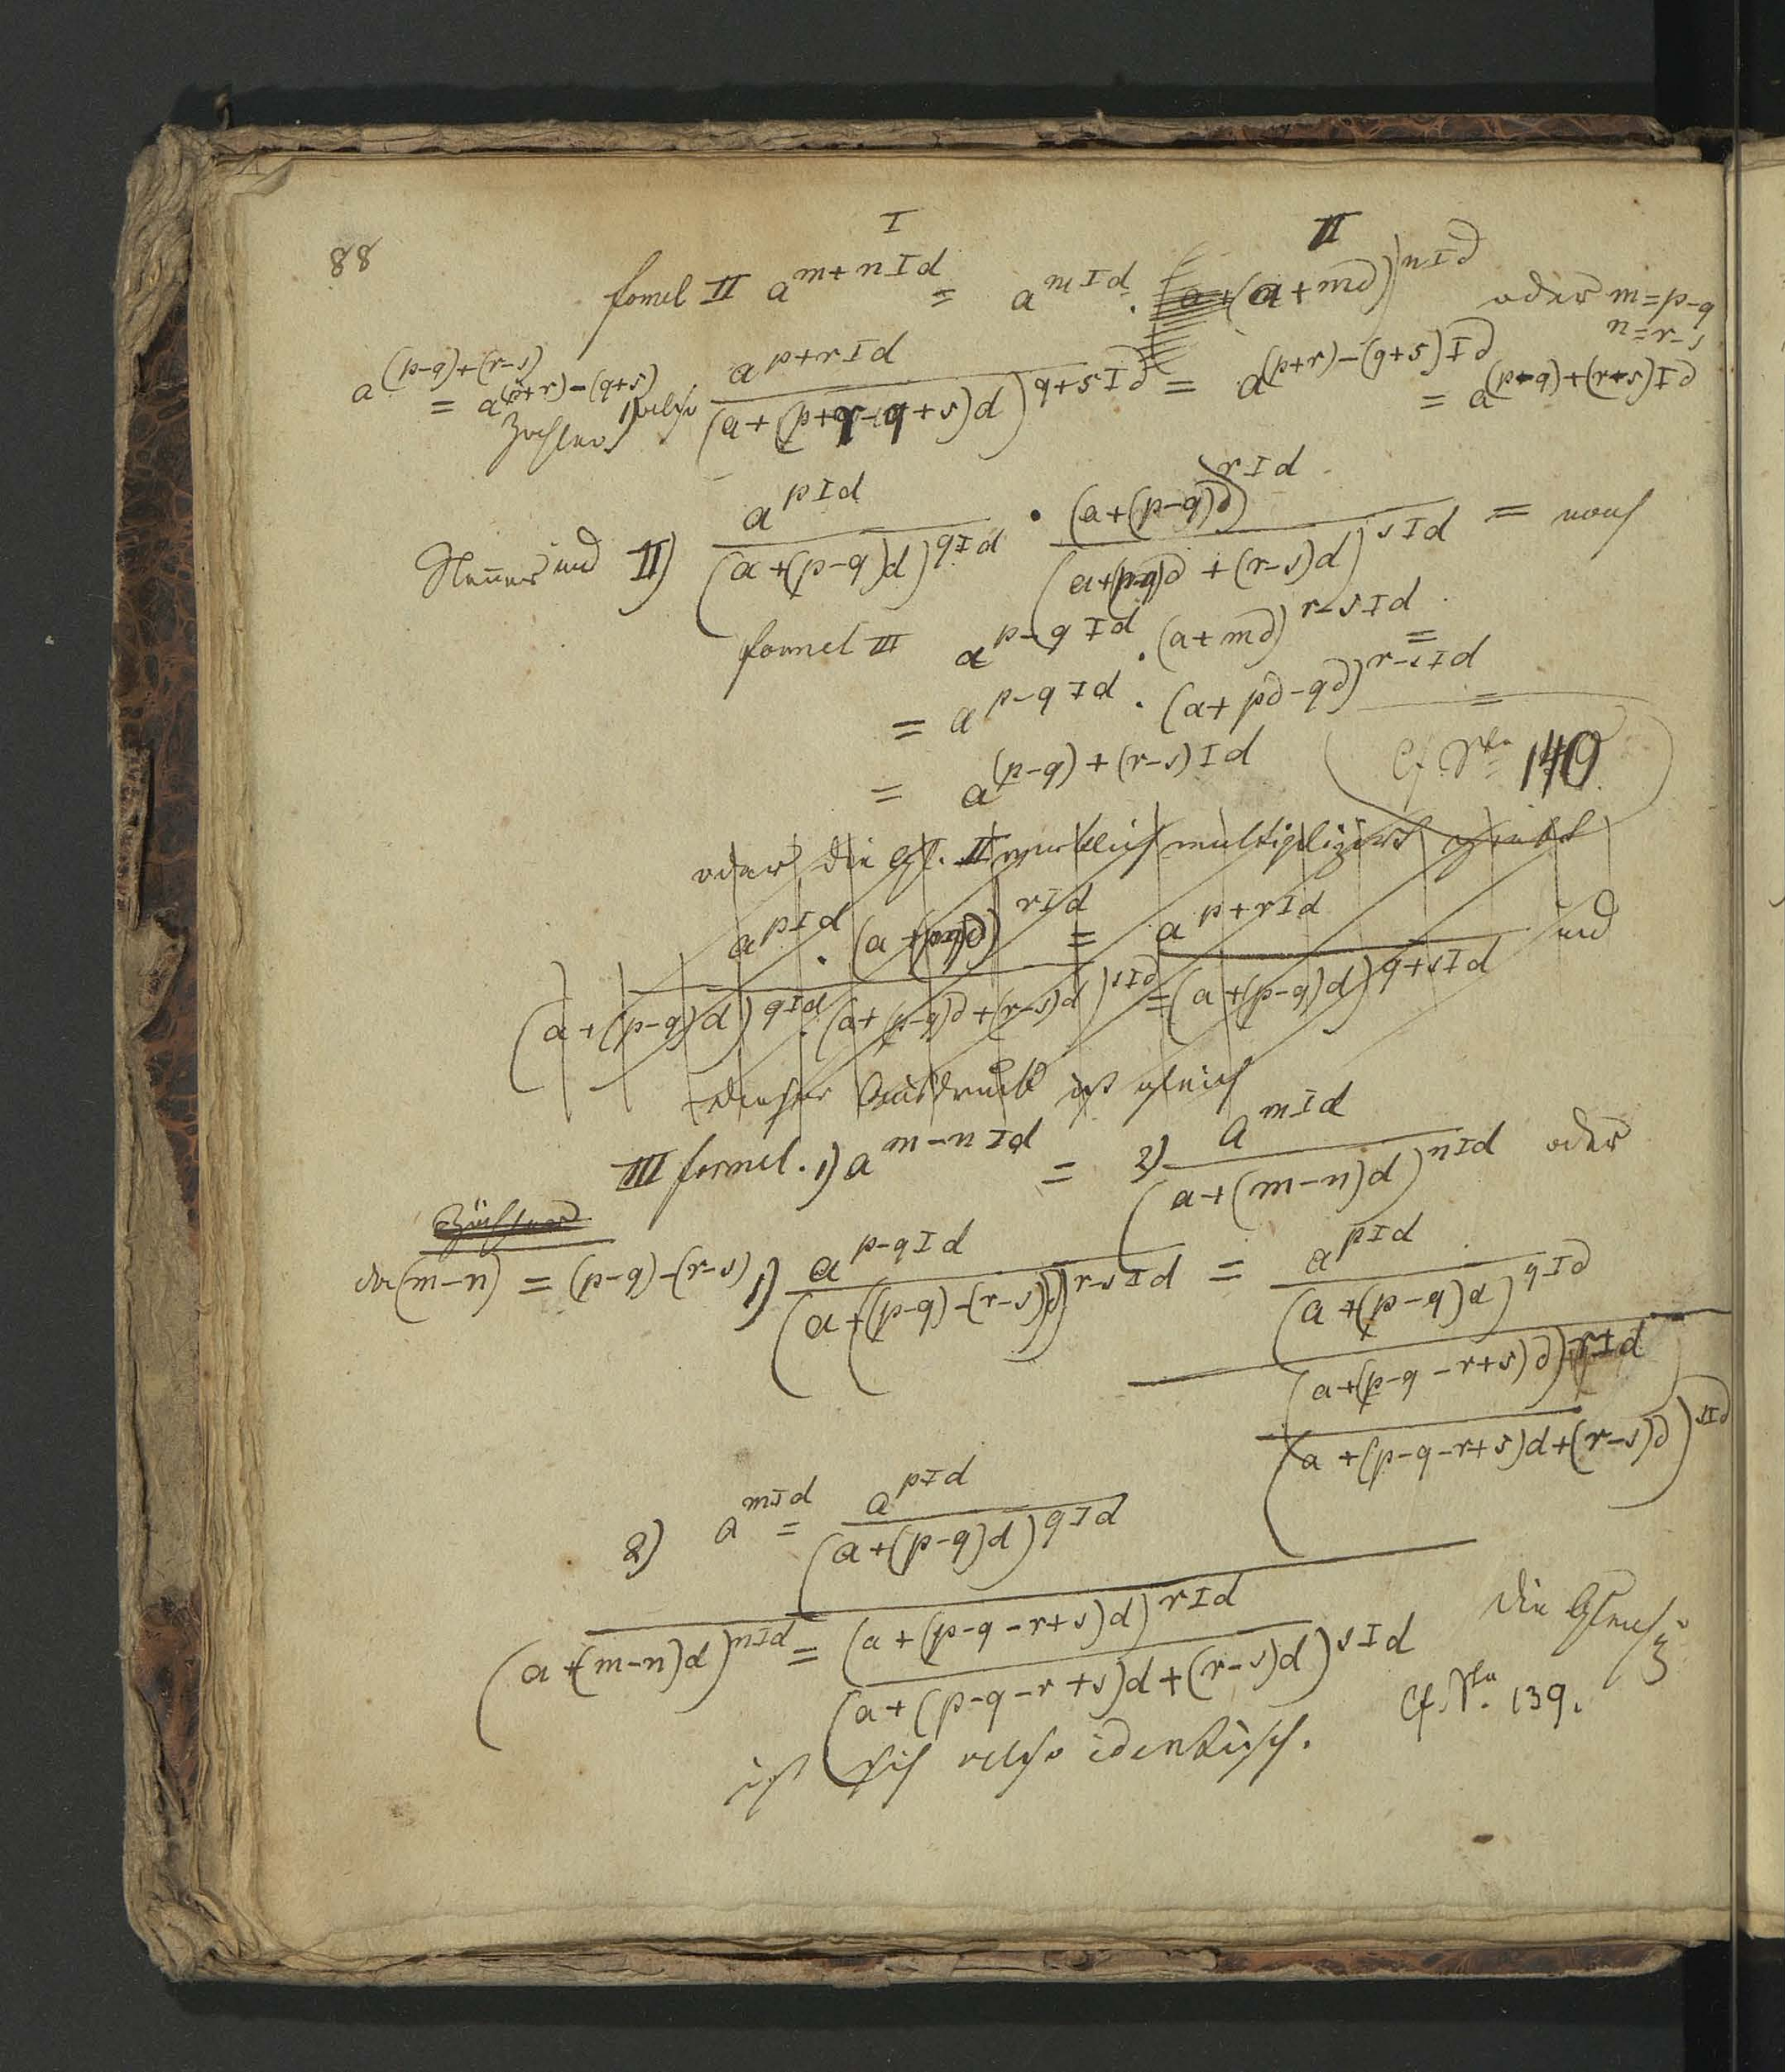 88
I II
formel II a^{m+nId} = a^{mId} · (a+md)^{nId} oder m=p-q
n=r-s
a^{(p-q)+(r-s)} = a^{(p+r)-(q+s)}
Zähler 1) also a^{p+rId} / (a+(p+r-q+s)d)^{q+sId} = a^{(p+r)-(q+s)Id} = a^{(p-q)+(r-s)Id}
Nenner und II) a^{pId} / (a+(p-q)d)^{qId} · (a+(p-q)d)^{rId} / (a+(p-q)d+(r-s)d)^{sId} = nach
formel III a^{p-qId} · (a+md)^{r-sId} =
= a^{p-qId} · (a+pd-qd)^{r-sId} =
= a^{(p-q)+(r-s)Id} Cf. Stn 140
oder die Gl. II wirklich multiplizirt giebt
a^{pId} · (a+md)^{rId} = a^{p+rId} und
(a+(p-q)d)^{qId} · (a+(p-q)d+(r-s)d)^{sId} = (a+(p-q)d)^{q+sId}
dieser Ausdruck ist gleich
III formel. 1) a^{m-nId} = 2) a^{mId} / (a+(m-n)d)^{nId} oder
Zähler
da (m-n) = (p-q)-(r-s) 1) a^{p-qId} / (a+((p-q)-(r-s))d)^{r-sId} = a^{pId} / (a+(p-q)d)^{qId}
(a+(p-q-r+s)d)^{rId}
(a+(p-q-r+s)d+(r-s)d)^{sId}
2) a^{mId} = a^{pId} / (a+(p-q)d)^{qId}
(a+(m-n)d)^{nId} = (a+(p-q-r+s)d)^{rId} / (a+(p-q-r+s)d+(r-s)d)^{sId} die Gleichg
ist sich also identisch. Cf. Stn. 139.